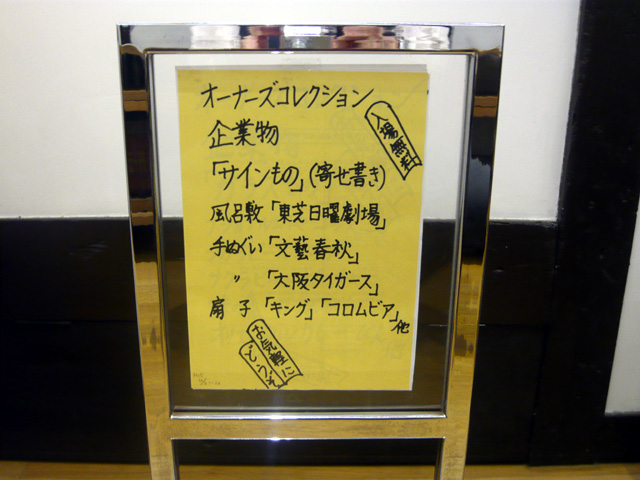 オーナーズコレクション
入場無料
企業物
「サインもの」(寄せ書き)
風呂敷「東芝日曜劇場」
手ぬぐい「文藝春秋」
〃 「大阪タイガース」
扇子「キング」「コロムビア」他
お気軽に
どうぞ